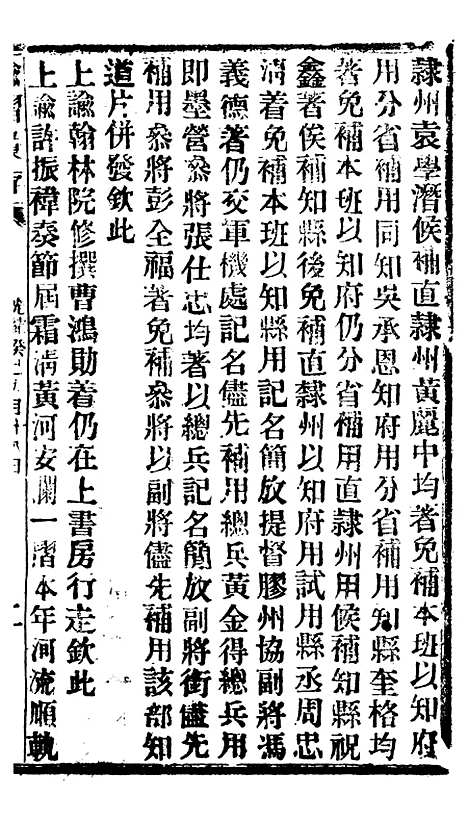 隷州袁學潛候補直隷州黃麗中均著免補本班以知府
用分省補用同知吳承恩知府用分省補用知縣奎格均
著免補本班以知府仍分省補用直隷州用候補知縣祝
鑫著俟補知縣後免補直隷州以知府用試用縣丞周忠
淯着免補本班以知縣用記名簡放提督膠州協副將馮
義德著仍交軍機處記名儘先補用總兵黃金得總兵用
即墨營叅將張仕忠均著以總兵記名簡放副將衘儘先
補用叅將彭全福著免補叅將以副將儘先補用該部知
道片併發欽此
上諭翰林院修撰曹鴻勛着仍在上書房行走欽此
上諭許振禕奏節屆霜淸黃河安瀾一摺本年河流順軌
諭摺彙存